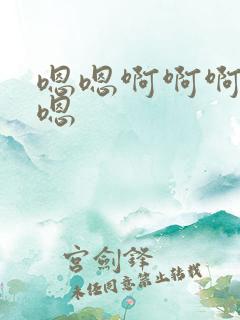 嗯嗯啊啊啊
嗯
宫剑锋
未经同意禁止转载